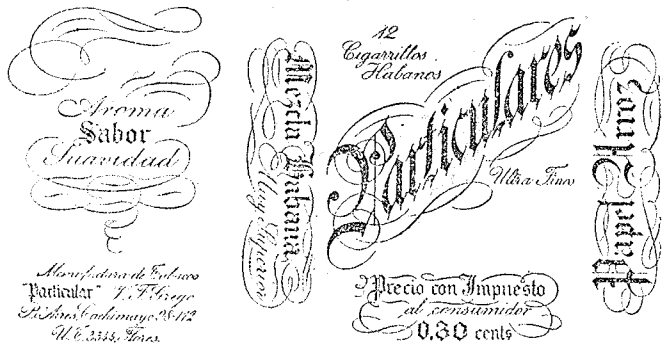 Aroma
Sabor
Suavidad
Manufactura de Tabacos
"Particular" V. F. Grego
Bs. Aires, Cachimayo
U. T. Flores
Mezcla Habana
Muy Superior
12
Cigarrillos
Habanos
Particulares
Ultra Finos
Precio con Impuesto
al consumidor
0.30 cents
Papel Arroz